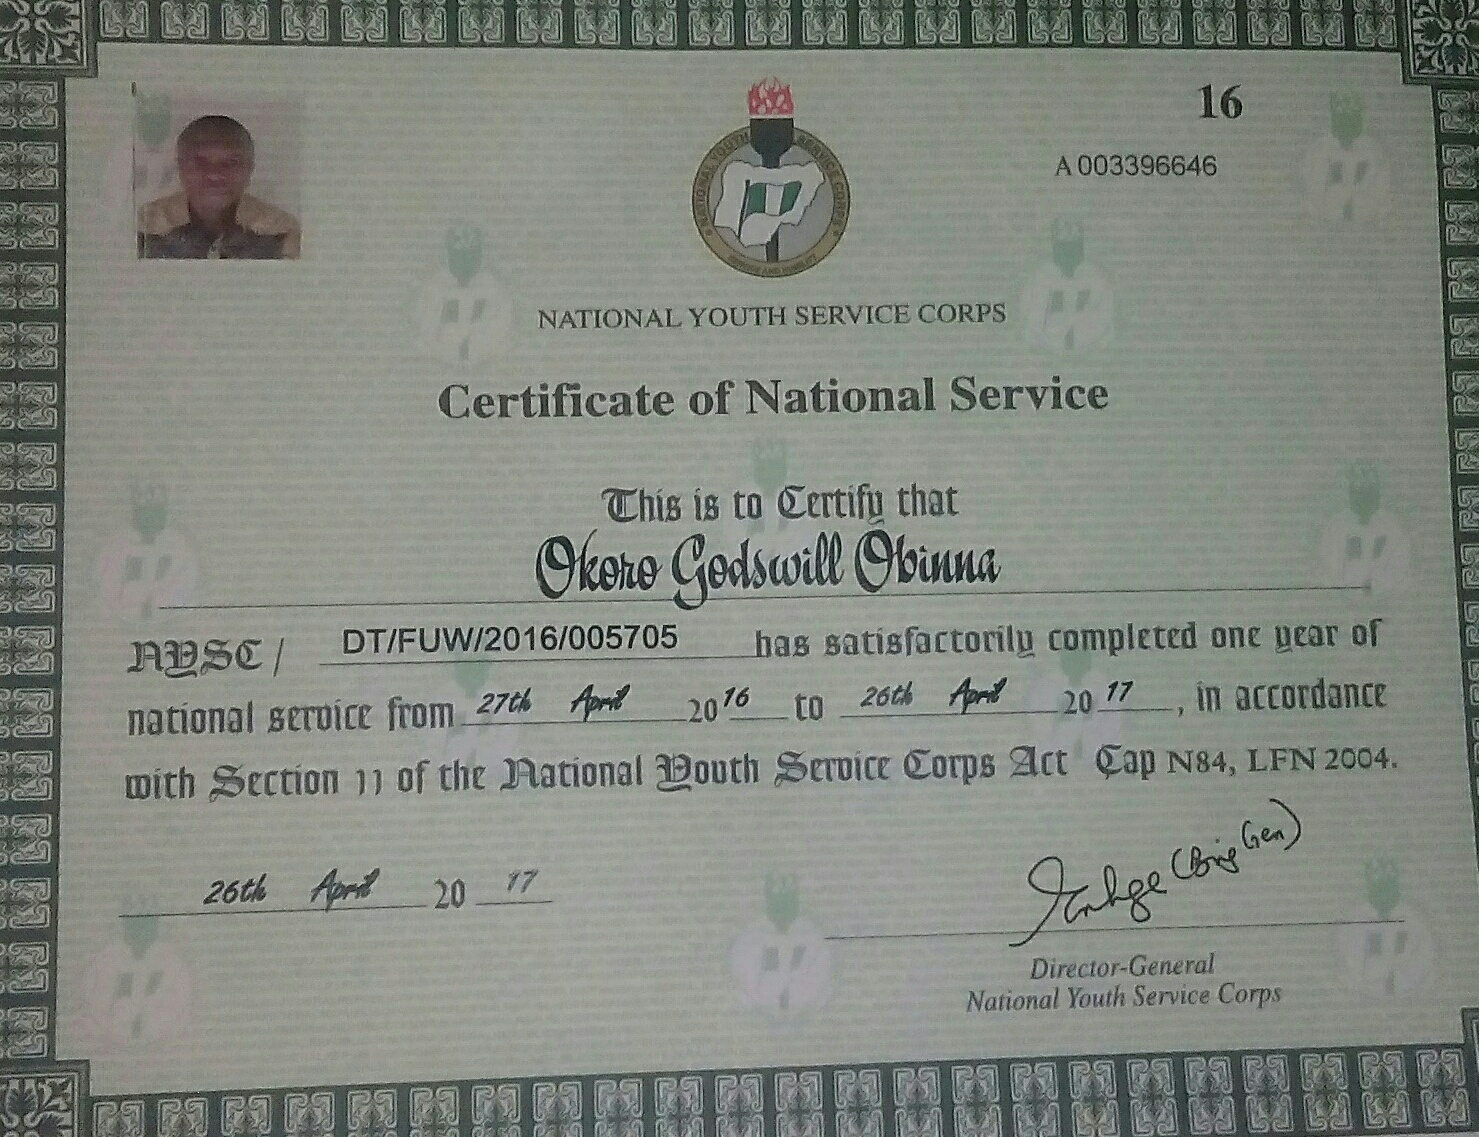 16
A 003396646
NATIONAL YOUTH SERVICE CORPS
NATIONAL YOUTH SERVICE CORPS
Certificate of National Service
This is to Certify that
Okoro Godswill Obinna
NYSC / DT/FUW/2016/005705 has satisfactorily completed one year of
national service from 27th April 2016 to 26th April 2017, in accordance
with Section 11 of the National Youth Service Corps Act Cap N84, LFN 2004.
26th April 2017
(Brig Gen)
Director-General
National Youth Service Corps